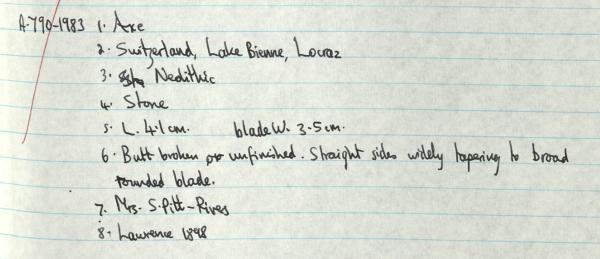 A.790-1983 1. Axe
2. Switzerland, Lake Bienne, Locraz
3. Neolithic
4. Stone
5. L. 4.1cm. blade W. 3.5cm.
6. Butt broken or unfinished. Straight sides widely tapering to broad
rounded blade.
7. Mrs. S. Pitt-Rives
8. Lawrence 1898